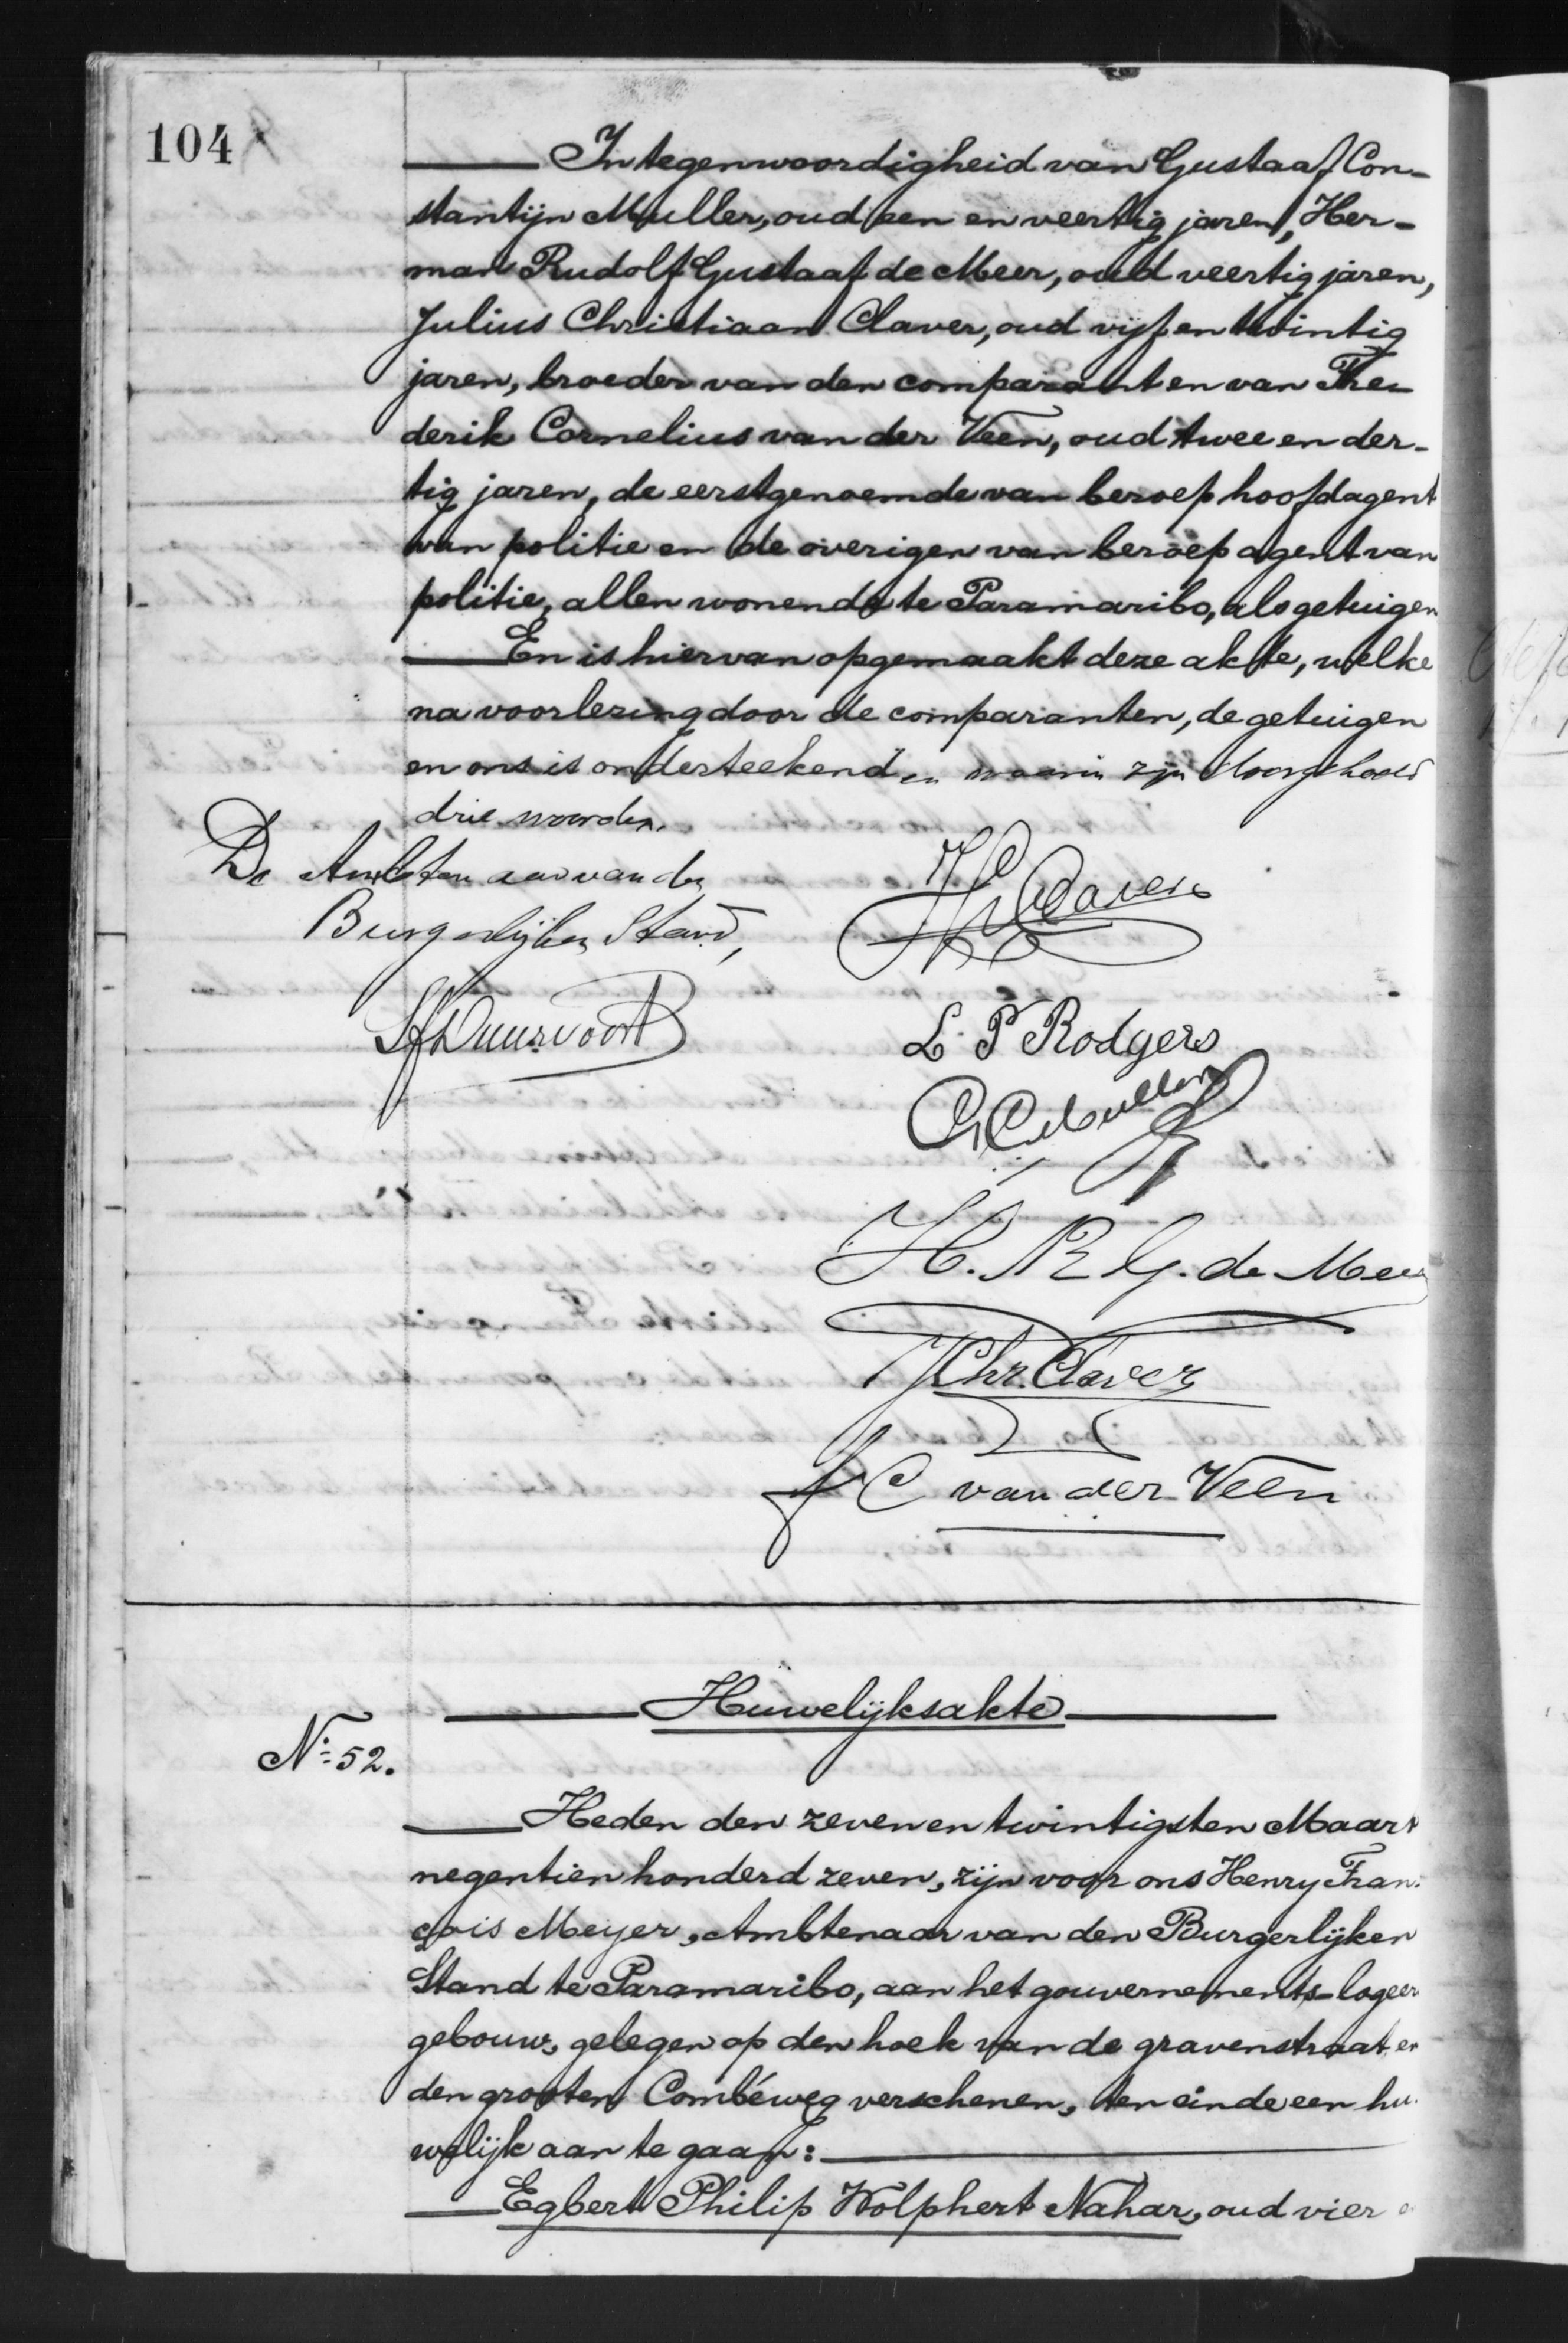 104
In tegenwoordigheid van Gustaaf Con-
stantijn Muller, oud een en veertig jaren, Her-
man Rudolf Gustaaf de Meer, oud veertig jaren,
Julius Christiaan Claver, oud vijf en twintig
jaren, broeder van den comparant en van Fre-
derik Cornelius van der Veen, oud twee en der-
tig jaren, de eerstgenoemde van beroep hoofdagent
van politie en de overigen van beroep agent van
politie, allen wonende te Paramaribo, als getuigen
En is hiervan opgemaakt deze akte, welke
na voorlezing door de comparanten, de getuigen
en ons is onderteekend en waarin zijn doorgehaald
drie woorden.
De Ambtenaar van den
Burgerlijken Stand,
Claver
Duurvoort
L. P Rodgers
G C Muller
H. R G. de Meer
J Chr. Claver
F C van der Veen
Huwelijksakte
No. 52.
Heden den zeven en twintigsten Maart
negentien honderd zeven, zijn voor ons Henry Fran-
çois Meyer, Ambtenaar van den Burgerlijken
Stand te Paramaribo, aan het gouvernements-logeer
gebouw, gelegen op den hoek van de gravenstraat en
den grooten Combéweg verschenen, ten einde een hu-
welijk aan te gaan:
Egbert Philip Wolphert Nahar, oud vier